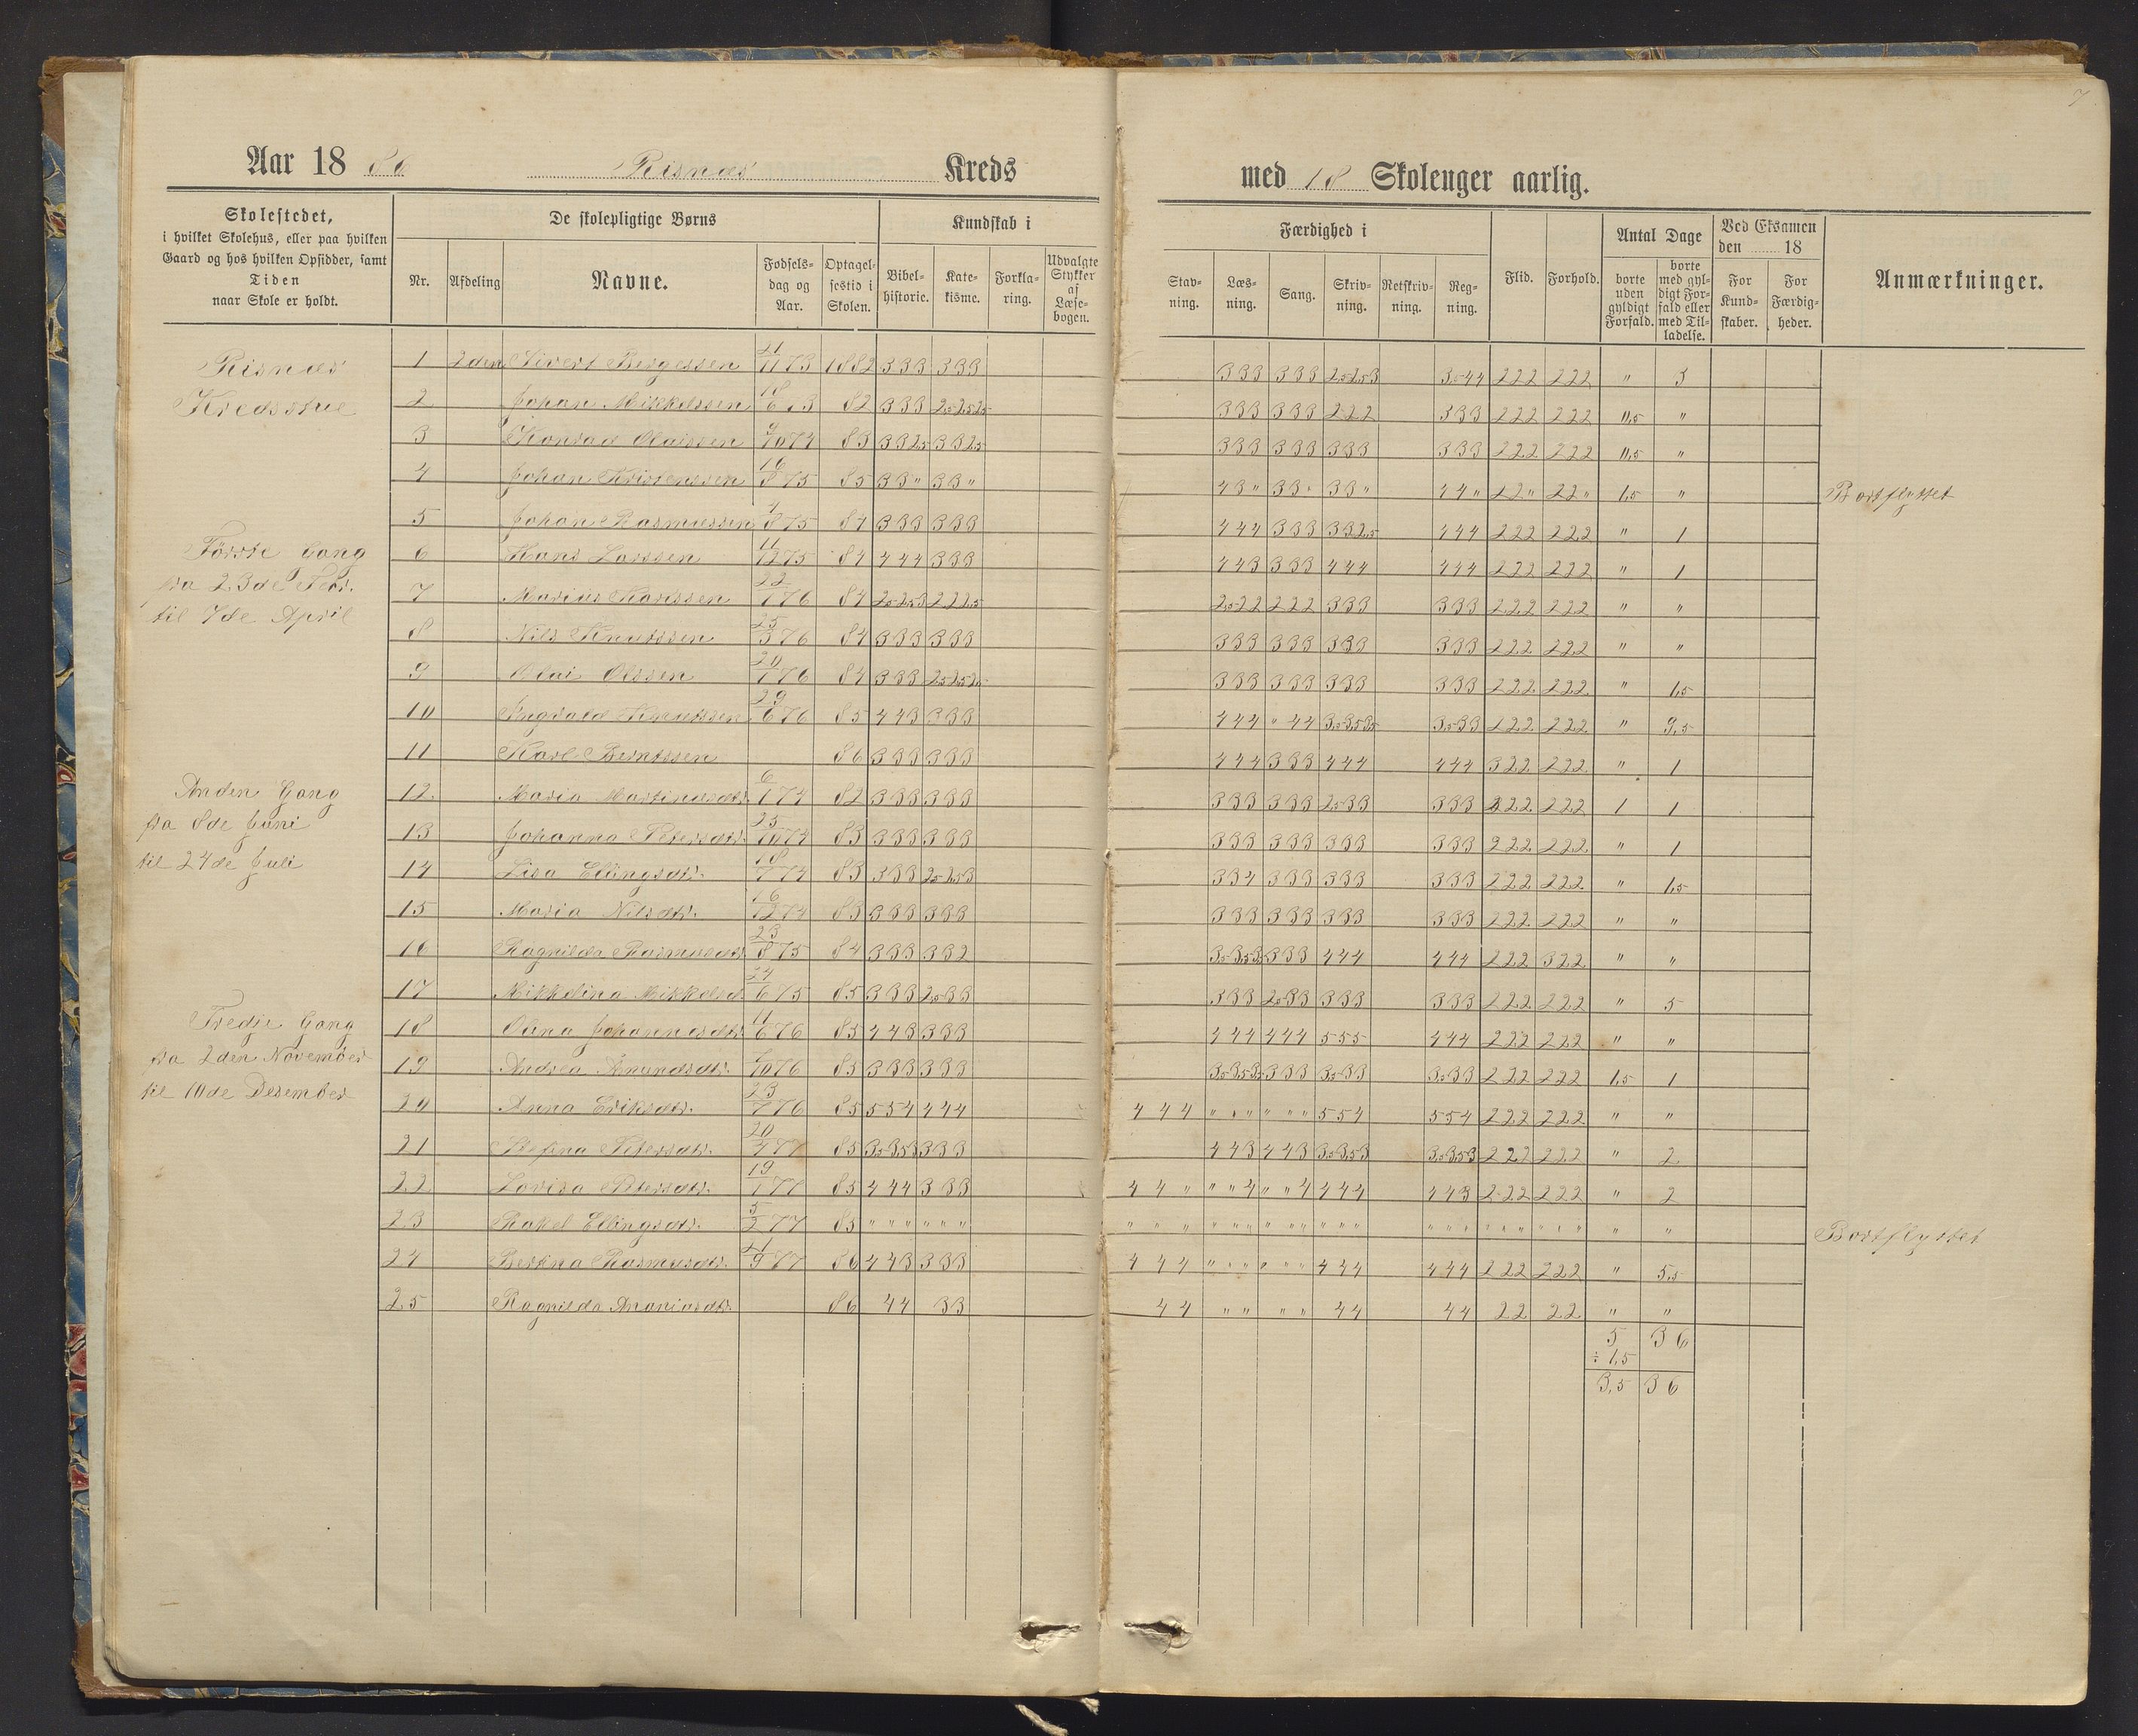 7
Aar 1886 Risnæs Kreds med 18 Skoleuger aarlig.
Skolestedet, i hvilket Skolehus, eller paa hvilken Gaard og hos hvilken Opsidder, samt Tiden naar Skole er holdt.
De skolepligtige Børns
Nr. Afdeling Navne. Fødsels-dag og Aar. Optagelsestid i Skolen.
Kundskab i
Bibelhistorie. Katekisme. Forklaring. Udvalgte Stykker af Læsebogen.
Færdighed i
Stavning. Læsning. Sang. Skrivning. Retskrivning. Regning.
Flid. Forhold.
Antal Dage
borte uden gyldigt Forfald. borte med gyldigt Forfald eller med Tilladelse.
Ved Eksamen den 18
For Kundskaber. For Færdigheder.
Anmærkninger.
Risnæs
Kredsstue
Første Gang
fra 23de Febr.
til 7de April
Anden Gang
fra 8de Juni
til 24de Juli
Tredje Gang
fra 2den November
til 10de Desember
1 2den Sivert Bergessen 21/11 73 1882 333 333 333 333 2,5 2,5 3 3,5 44 222 222 " 3
2 Johan Mikkelssen 18/6 73 82 333 2,5 2,5 2,5 333 333 222 333 222 222 11,5 "
3 Konrad Olaissen 9/10 74 83 332,5 332,5 333 333 333 333 222 222 11,5 "
4 Johan Kristenssen 16/8 75 85 33" 33" 43" 33" 33" 44" 22" 22" 1,5 " Bortflyttet
5 Johan Rasmussen 4/8 75 84 333 333 444 333 332,5 444 222 222 " 1
6 Hans Larssen 11/12 75 84 444 333 443 333 444 444 222 222 " 1
7 Marius Karlssen 22/7 76 84 2,5 2,5 3 222,5 2,5 22 222 333 333 222 222 " "
8 Nils Knutssen 25/3 76 84 333 333 333 333 333 333 222 222 " "
9 Olai Olssen 20/7 76 84 333 2,5 2,5 2,5 333 333 333 333 222 222 " 1,5
10 Ingvald Knutssen 29/6 76 85 443 333 444 "44 3,5 3,5 3,5 3,5 33 222 222 " 9,5
11 Karl Berntssen 86 333 333 444 333 444 444 322 222 " 1
12. Maria Martinusdtr. 6/1 74 82 333 333 333 333 2,5 33 333 322 222 1 1
13 Johanna Petersdtr. 25/10 74 83 333 333 333 333 333 333 222 222 " 1
14 Lisa Ellingsdtr. 18/7 74 83 333 2,5 2,5 3 334 333 333 333 222 222 " 1,5
15 Maria Nilsdtr. 16/12 74 83 333 333 333 333 333 333 222 222 " "
16 Ragnilda Rasmusdtr. 23/8 75 84 333 332 3,5 3,5 3,5 333 444 444 222 322 " "
17 Mikkeline Mikkelsd. 24/6 75 85 333 2,5 33 333 2,5 33 333 333 222 222 " 5
18 Olina Johannesdtr. 11/6 76 85 443 333 444 444 555 444 222 222 " "
19 Andrea Amundsdtr. 10 76 85 333 333 3,5 3,5 3,5 333 3,5 33 3,5 33 222 222 1,5 1
20 Anna Eriksdtr. 23/7 76 85 554 444 444 " " " " " " 554 554 222 222 " "
21 Petersdtr. 20/4 77 85 3,5 3,5 3 333 443 443 3,5 3,5 3 3,5 3,5 3 222 222 " 2
22 Lovisa Petersdtr. 19/1 77 85 444 333 44" " "4 " "4 444 443 222 222 " 2
23 Rakel Ellingsdtr. 5/2 77 85 " " " " " " " " " " " " " " " " " " " " " " " " " " " " " Bortflyttet
24 Bertina Rasmusdtr. 21/9 77 86 443 333 444 " " " " " " 444 444 222 222 " 5,5
25 Ragnilda Ananiasdtr. 86 44 33 44 " " " " 44 44 22 22 " "
5 36
÷ 1,5
3,5 36